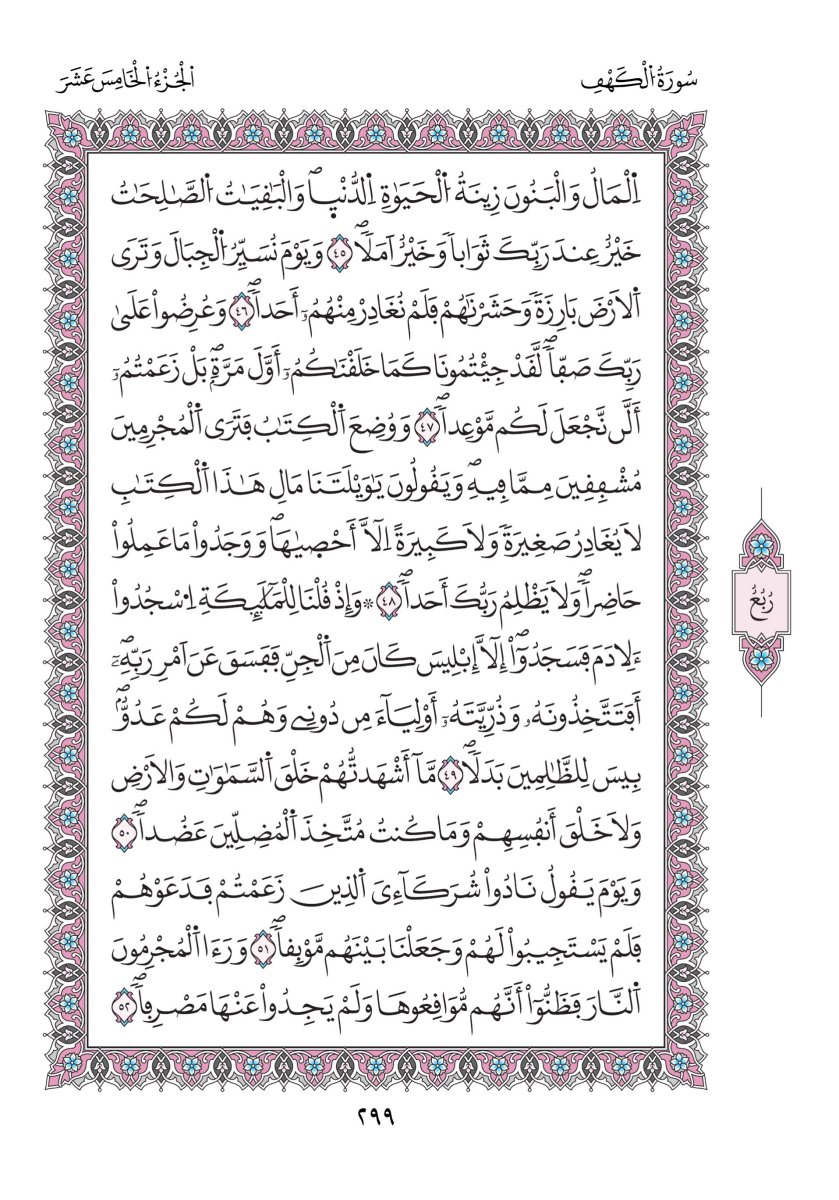 سُورَةُ اُ۬لْكَهْفِ
اَ۬لْجُزْءُ اُ۬لْخَامِسَ عَشَرَ
اِ۬لْمَالُ وَالْبَنُونَ زِينَةُ اُ۬لْحَيَوٰةِ اِ۬لدُّنْي۪اۖ وَالْبَٰقِيَٰتُ اُ۬لصَّٰلِحَٰتُ
خَيْرٌ عِندَ رَبِّكَ ثَوَاباٗ وَخَيْرٌ اَمَلاٗۖ ٤٥ وَيَوْمَ نُسَيِّرُ اُ۬لْجِبَالَ وَتَرَى
اَ۬لَارْضَ بَارِزَةٗ وَحَشَرْنَٰهُمْ فَلَمْ نُغَادِرْ مِنْهُمُۥٓ أَحَداٗۖ ٤٦ وَعُرِضُواْ عَلَىٰ
رَبِّكَ صَفّاٗۖ لَّقَدْ جِئْتُمُونَا كَمَا خَلَقْنَٰكُمُۥٓ أَوَّلَ مَرَّةِۢۖ بَلْ زَعَمْتُمُۥٓ
أَلَّن نَّجْعَلَ لَكُم مَّوْعِداٗۖ ٤٧ وَوُضِعَ اَ۬لْكِتَٰبُ فَتَرَى اَ۬لْمُجْرِمِينَ
مُشْفِقِينَ مِمَّا فِيهِۖ وَيَقُولُونَ يَٰوَيْلَتَنَا مَالِ هَٰذَا اَ۬لْكِتَٰبِ
لَا يُغَادِرُ صَغِيرَةٗ وَلَا كَبِيرَةً اِلَّآ أَحْص۪يٰهَاۖ وَوَجَدُواْ مَا عَمِلُواْ
حَاضِراٗۖ وَلَا يَظْلِمُ رَبُّكَ أَحَداٗۖ ٤٨ ۞ وَإِذْ قُلْنَا لِلْمَلَٰٓئِكَةِ اِ۟سْجُدُواْ
ءَلِادَمَ فَسَجَدُوٓاْۖ إِلَّآ إِبْلِيسَ كَانَ مِنَ اَ۬لْجِنِّ فَفَسَقَ عَنَ اَمْرِ رَبِّهِۦٓۖ
أَفَتَتَّخِذُونَهُۥ وَذُرِّيَّتَهُۥٓ أَوْلِيَآءَ مِن دُونِے وَهُمْ لَكُمْ عَدُوُّۢۖ
بِيسَ لِلظَّٰلِمِينَ بَدَلاٗۖ ٤٩ مَّآ أَشْهَدتُّهُمْ خَلْقَ اَ۬لسَّمَٰوَٰتِ وَالَارْضِ
وَلَا خَلْقَ أَنفُسِهِمْ وَمَا كُنتُ مُتَّخِذَ اَ۬لْمُضِلِّينَ عَضُداٗۖ ٥٠
وَيَوْمَ يَقُولُ نَادُواْ شُرَكَآءِيَ اَ۬لذِينَ زَعَمْتُمْ فَدَعَوْهُمْ
فَلَمْ يَسْتَجِيبُواْ لَهُمْ وَجَعَلْنَا بَيْنَهُم مَّوْبِقاٗۖ ٥١ وَرَءَا اَ۬لْمُجْرِمُونَ
اَ۬لنَّارَ فَظَنُّوٓاْ أَنَّهُم مُّوَاقِعُوهَا وَلَمْ يَجِدُواْ عَنْهَا مَصْرِفاٗۖ ٥٢
رُبُعُ
٢٩٩